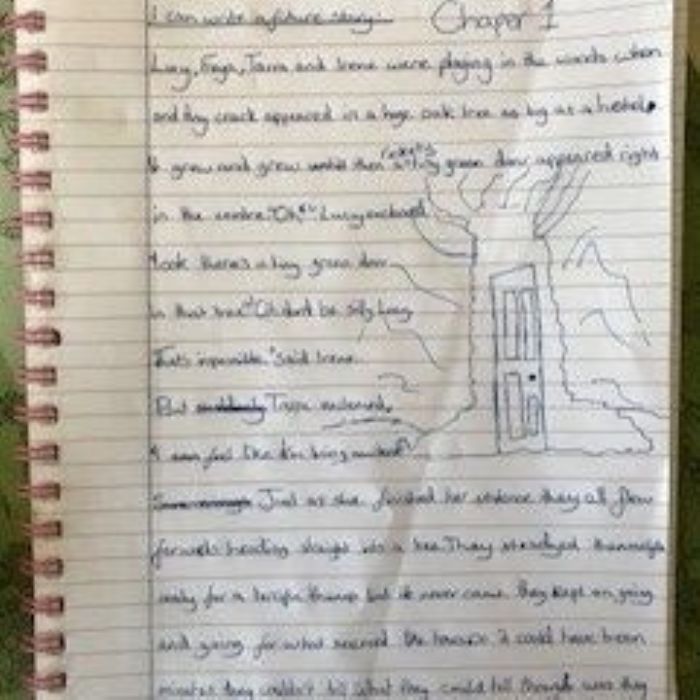 I can write a future story. Chaper 1
Lucy, Freya, Tarra and Irene were playing in the woods when
and tiny crack appeared in a huge oak tree as big as a hotel.
It grew and grew untill then a tiny green door appeared right
in the centre. "Oh" Lucy
look there's a tiny green door
in that tree" "Oh dont be silly Lucy
Thats impossible." Said Irene.
But suddenly
I feel like I'm being
Sure enough Just as she finished her sentence they all flew
forwards heading straight into a tree. They themselfs
ready for a thump but it never came. they kept on going
and going for what seemed like It could have been
minutes they couldn't tell what they could tell though was they